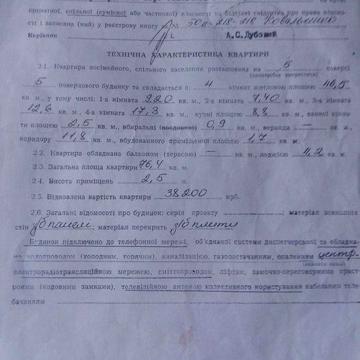 приватної, спільної (сумісної або часткової) власності
і записана (ний) у реєстрову книгу
Керівник А.С. Дубовий
ТЕХНІЧНА ХАРАКТЕРИСТИКА КВАРТИРИ
2.1. Квартира посімейного, спільного заселення розташована на 5 поверсі
5 поверхового будинку та складається з 4 кімнат житловою площею 46,5
кв. м, у тому числі: 1-а кімната кв. м, 2-а кімната 7,40 кв. м, 3-а кімната
12,2 кв. м, 4-а кімната 17,3 кв. м, кухні площею 8,8 кв. м, ванної кімна-
ти площею 2,5 кв. м, вбиральні 0,9 кв. м, веранда — кв. м,
коридору 11,8 кв. м, вбудованого приміщення площею 1,7 кв. м.
2.2. Квартира обладнана балконом (терасою) — кв. м, лоджією 4,2 кв. м.
2.3. Загальна площа квартири 76,4 кв. м.
2.4. Висота приміщень 2,5 м.
2.5. Відновлена вартість квартири 38200 крб.
2.6. Загальні відомості про будинок: серія проекту матеріал зовнішніх
стін з/б панелі, матеріал перекрить з/б плити
Будинок підключено до телефонної мережі, об'єднаної системи диспетчеризації та обладна-
но водопроводом (холодним, гарячим), каналізацією, газопостачанням, опаленням центр.
електрорадіотрансляційною мережею, сміттєпроводом, ліфтом, замочно-переговорним прист-
роєм (кодовими замками), телевізійною антеною колективного користування кабельним теле-
баченням